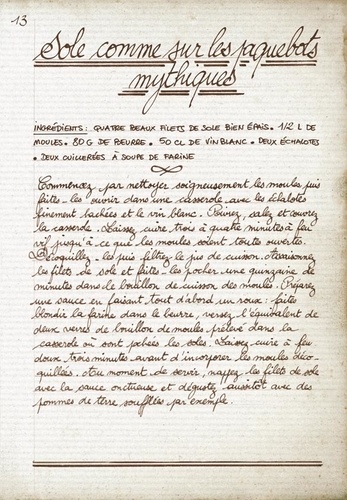 13
Sole comme sur les paquebots
mythiques
INGRÉDIENTS: QUATRE BEAUX FILETS DE SOLE BIEN ÉPAIS • 1/2 L DE
MOULES • 80 G DE BEURRE • 50 CL DE VIN BLANC • DEUX ÉCHALOTES
• DEUX CUILLERÉES À SOUPE DE FARINE
Commencez par nettoyer soigneusement les moules puis
faites-les ouvrir dans une casserole avec les échalotes
finement hachées et le vin blanc. Poivrez, salez et couvrez
la casserole. Laissez cuire trois à quatre minutes à feu
vif jusqu'à ce que les moules soient toutes ouvertes.
Décoquillez-les puis filtrez le jus de cuisson. Assaisonnez
les filets de sole et faites-les pocher une quinzaine de
minutes dans le bouillon de cuisson des moules. Préparez
une sauce en faisant tout d'abord un roux : faites
blondir la farine dans le beurre, versez l'équivalent de
deux verres de bouillon de moules prélevé dans la
casserole où sont pochés les soles. Laissez cuire à feu
doux trois minutes avant d'incorporer les moules déco-
quillées. Au moment de servir, nappez les filets de sole
avec la sauce onctueuse et dégustez aussitôt avec des
pommes de terre soufflées par exemple.